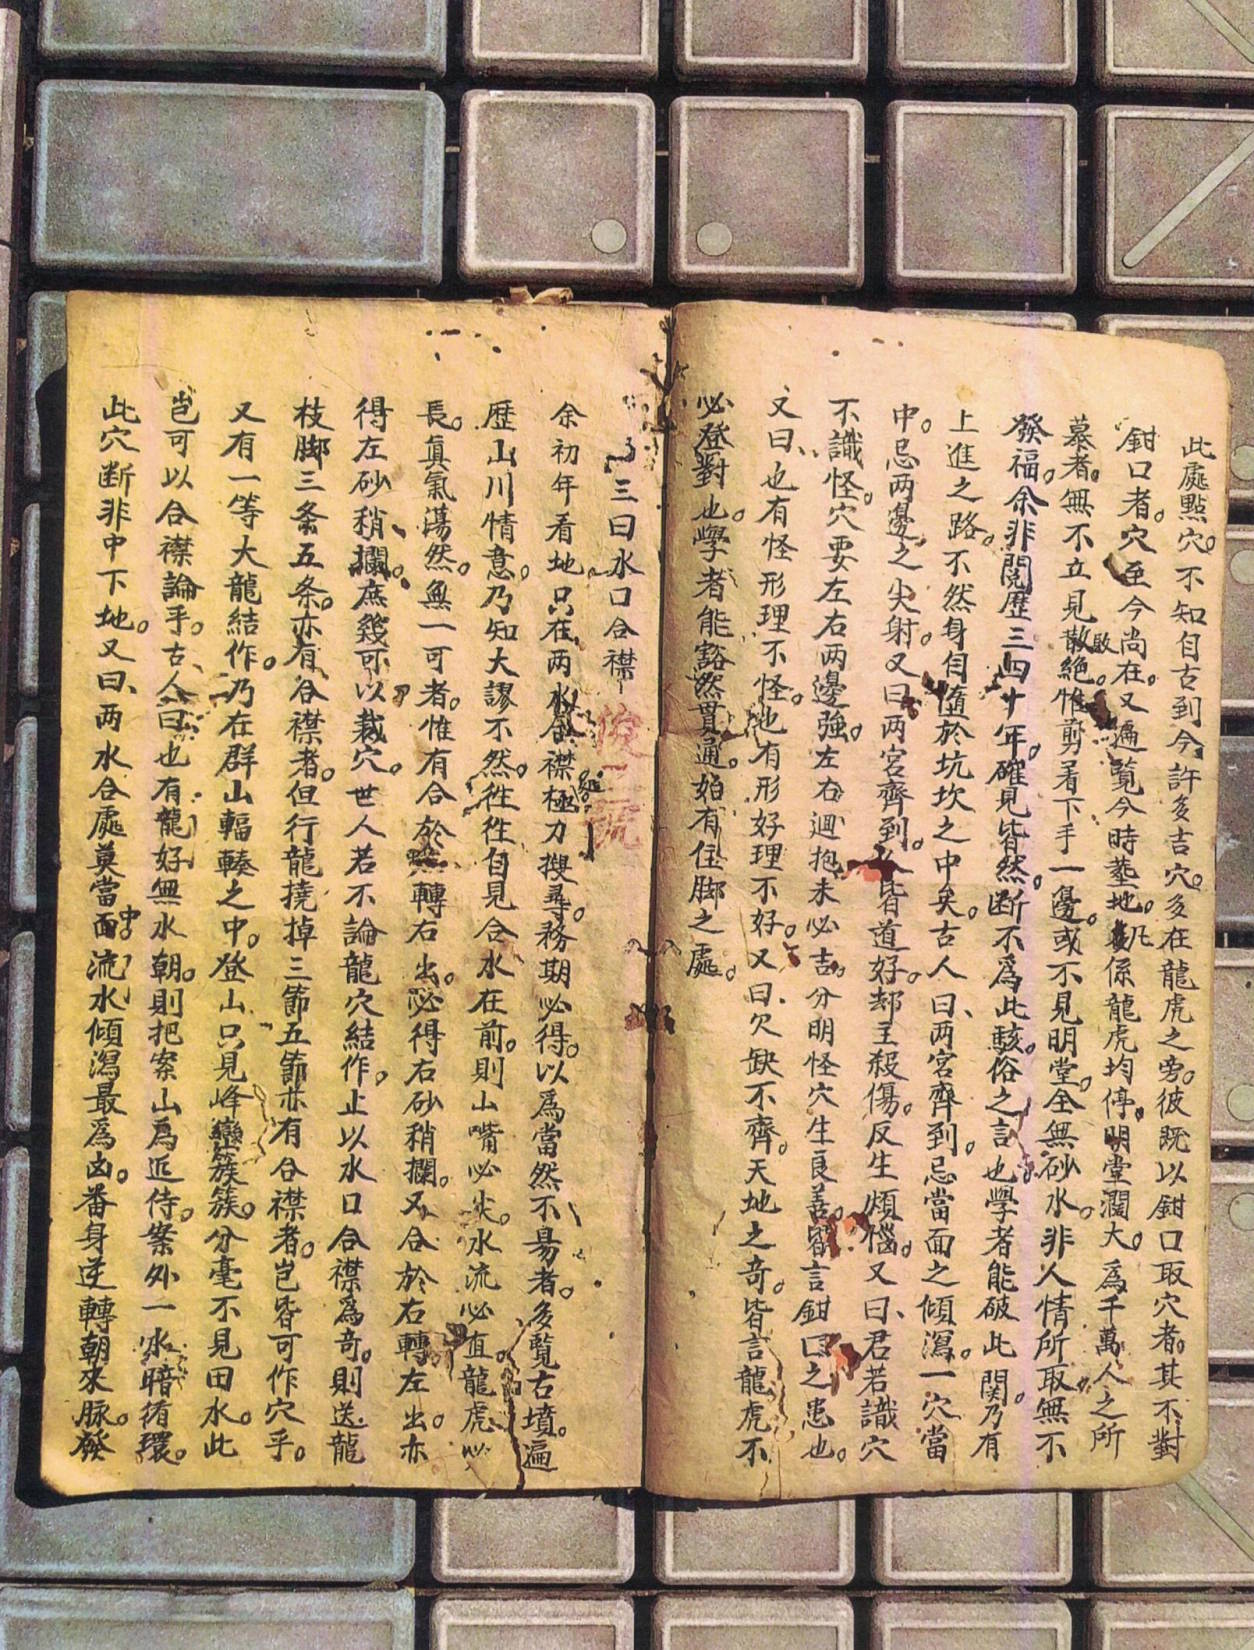 此處點穴。不知自古到今許多吉穴。多在龍虎之旁。彼既以鉗口取穴者。其不對
鉗口者。穴至今尚在。又遍覽今時塟地。凡係龍虎均停。明堂濶大。為千萬人之所
慕者。無不立見敗絕。惟剪看下手一邊。或不見明堂。全無砂水。非人情所取無不
發福。余非閱歷三四十年。確見皆然。断不為此駭俗之言也學者能破此関。乃有
上進之路。不然身自墮於坑坎之中矣。古人曰、两宮齊到。忌當面之傾瀉。一穴當
中。忌两邊之尖射。又曰两宮齊到。人皆道好。却主殺傷。反生煩惱。又曰、君若識穴
不識怪。穴要左右两邊強。左右迴抱未必吉。分明怪穴生良善。皆言鉗口之患也。
又曰、也有怪形理不怪。也有形好理不好。又曰、欠缺不齊。天地之奇。皆言龍虎不
必登對也。學者能豁然貫通。始有住脚之處。
三曰水口合襟
俊一號
余初年看地。只在两水合襟極力搜尋。務期必得。以為當然不易者。多覧古墳。遍
歷山川情意。乃知大謬不然。徃徃自見合水在前。則山嘴必尖。水流必直。龍虎必
長。真氣蕩然。無一可者。惟有合於轉右出。必得右砂稍攔。又合於右轉左出。亦
得左砂稍攔。庶幾可以裁穴。世人若不論龍穴結作。止以水口合襟為奇。則送龍
枝脚三条五条。亦有合襟者。但行龍撓掉三節五節亦有合襟者。豈皆可作穴乎。
又有一等大龍結作。乃在群山輻輳之中。登山只見峰巒簇簇。分毫不見田水。此
豈可以合襟論乎。古人曰也有龍好無水朝。則把案山為近侍。案外一水暗循環。
此穴断非中下地。又曰、两水合處莫當中。面流水傾瀉最為凶。番身逆轉朝來脉。發